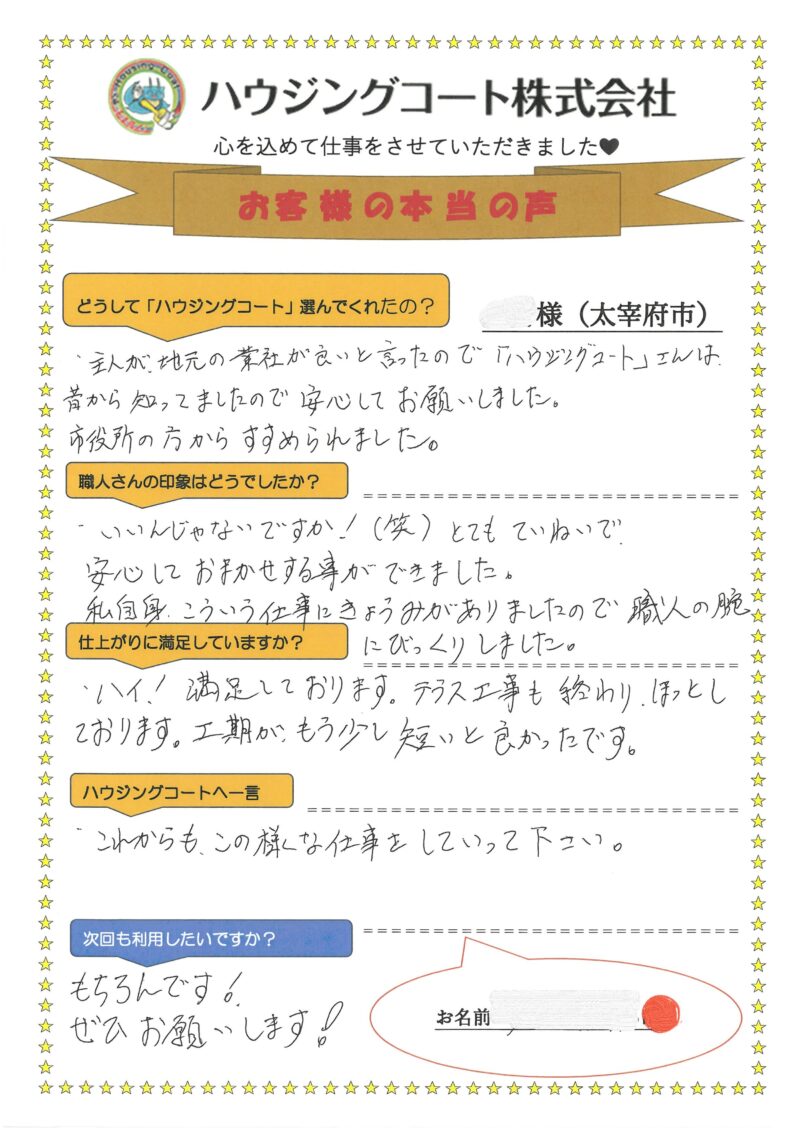 ハウジングコート株式会社
心を込めて仕事をさせていただきました♥
お客様の本当の声
どうして「ハウジングコート」選んでくれたの？
様（太宰府市）
・主人が、地元の業社が良いと言ったので「ハウジングコート」さんは、
昔から知ってましたので安心してお願いしました。
市役所の方からすすめられました。
職人さんの印象はどうでしたか？
・いいんじゃないですか！（笑）とてもていねいで、
安心しておまかせする事ができました。
私自身、こういう仕事にきょうみがありましたので職人の腕
にびっくりしました。
仕上がりに満足していますか？
・ハイ！満足しております。テラス工事も終わり、ほっとし
ております。工期が、もう少し短いと良かったです。
ハウジングコートへ一言
・これからも、この様な仕事をしていって下さい。
次回も利用したいですか？
もちろんです！
ぜひお願いします！
お名前